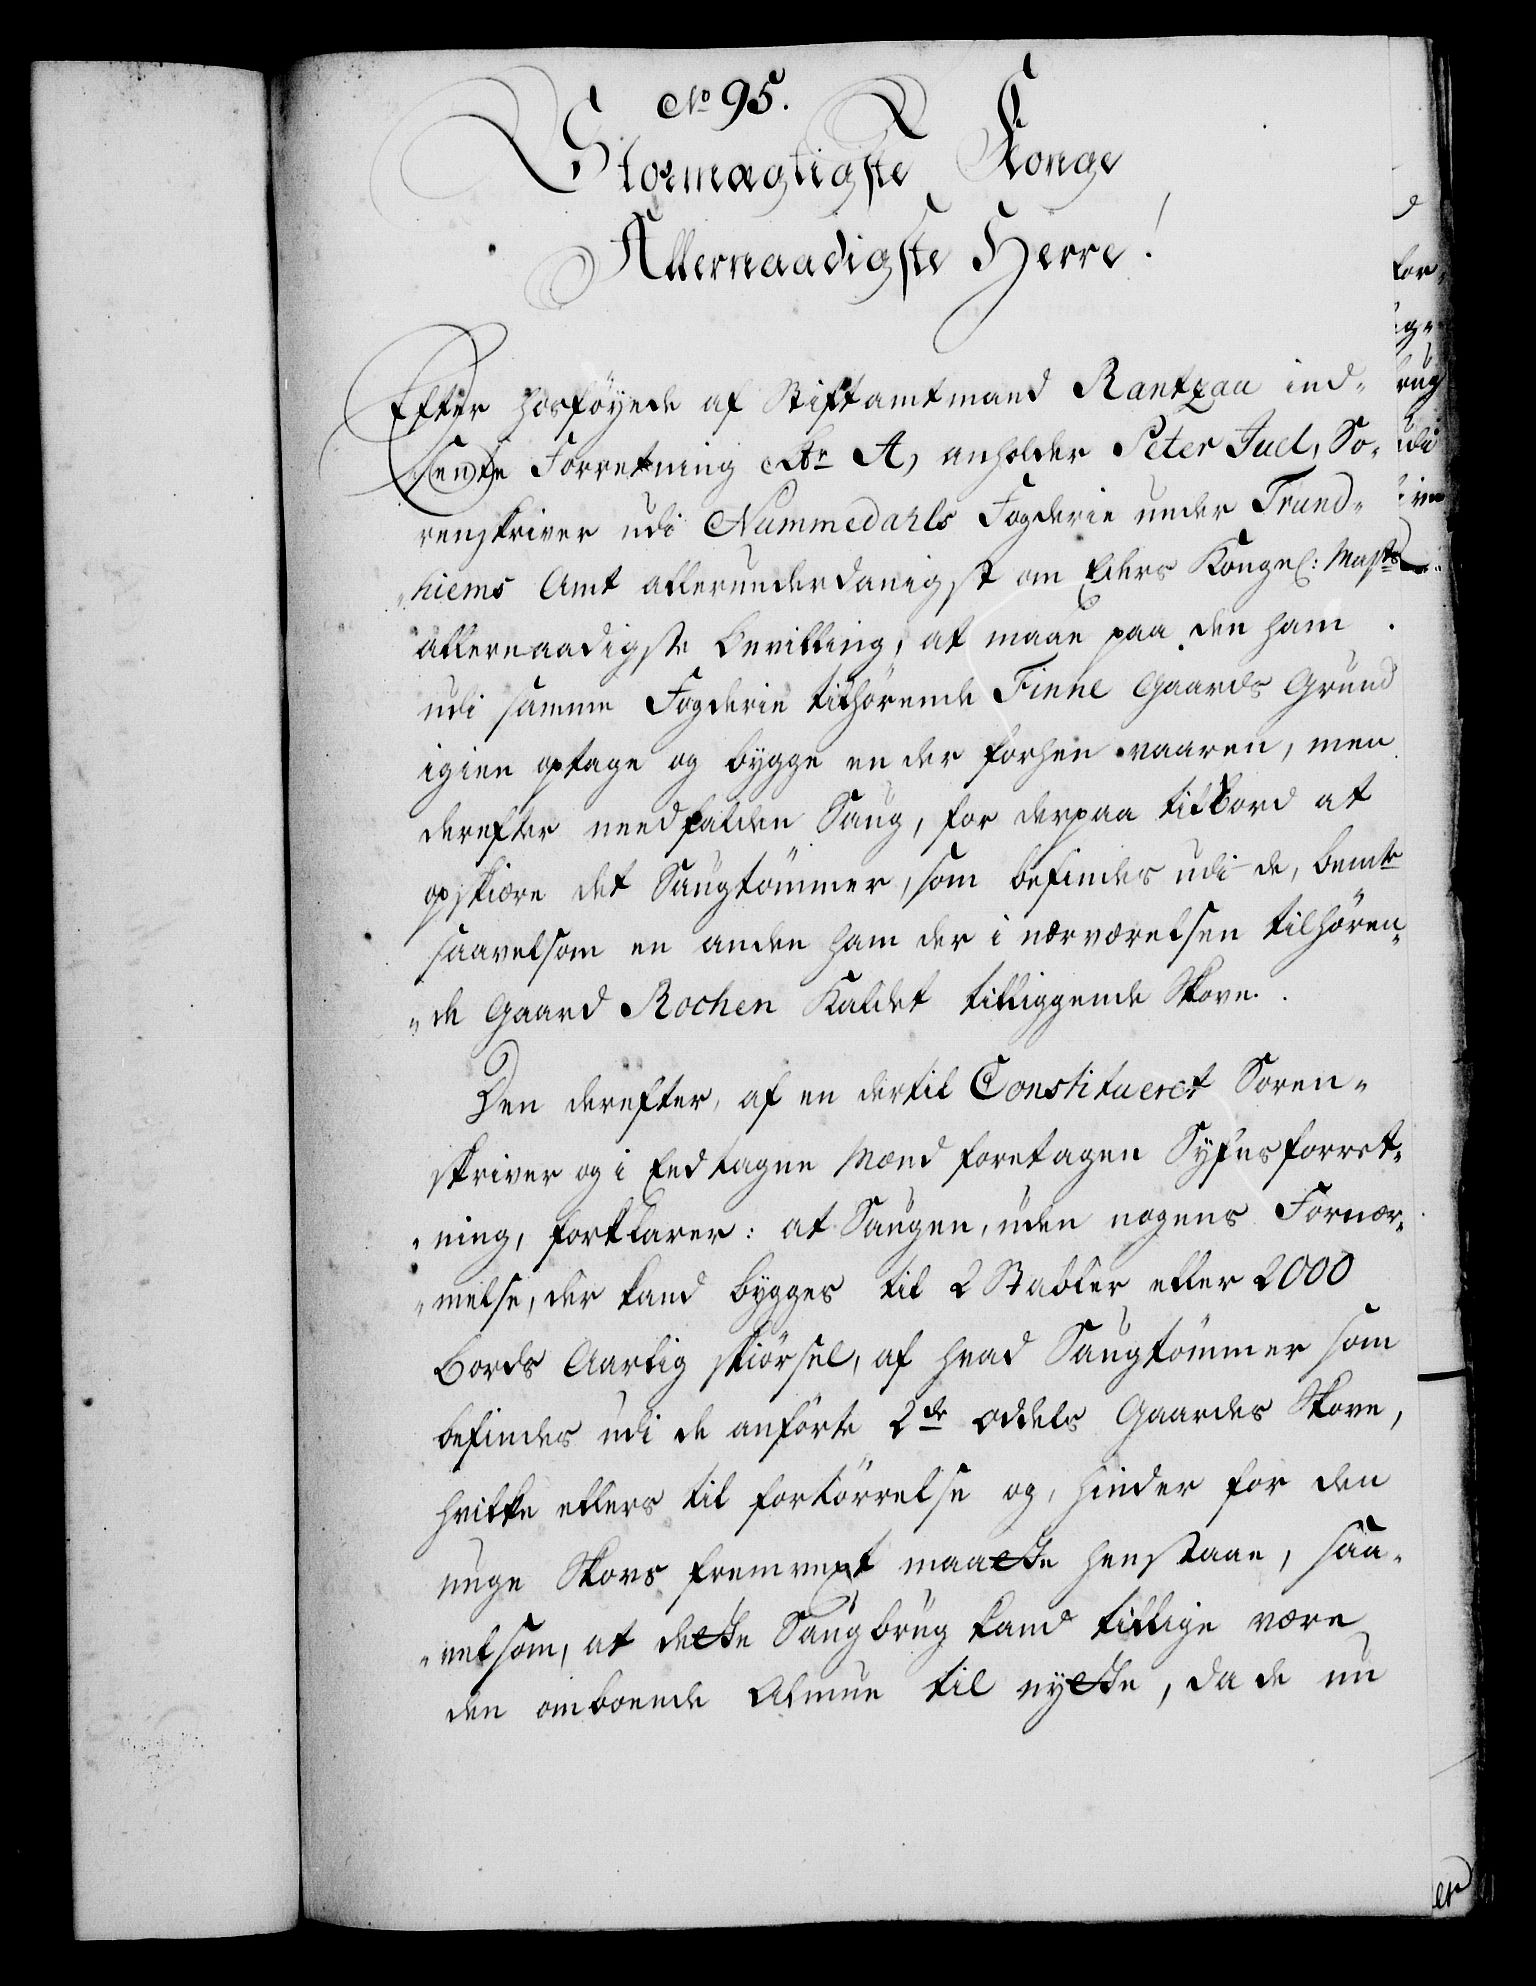 No 95.
Stormægtigste Konge
Allernaadigste Herre!
Efter hosföyede af Stiftamtmand Rantzau ind-
sendte Forretning Ltr A, anholder Peter Juel, So-
renskriver udi Nummedahls Fogderie under Trund-
hiems Amt allerunderdanigst om Eders Kongel: Maysts
allernaadigste Bevilling, at maae paa den ham
udi samme Fogderie tilhörende Finne Gaards Grund
igien optage og bygge en der forhen vaaren, men
derefter needfalden Saug, for derpaa til Bord at
opskiære det Saugtömmer, som befindes udi de, bemte
saavelsom en anden ham der i nærværelsen tilhören-
de Gaard Rochen Kaldet tilliggende Skove.
Den derefter, af en dertil Constitueret Soren-
skriver og i Eed tagne Mænd foretagen Syhnsforret-
ning, forklarer: at Saugen, uden nogens Fornær-
melse, der kand bygges til 2 Stabler eller 2000
Bords Aarlig skiörsel, af hvad Saugtömmer som
befindes udi de anförte 2de Oddels Gaardes Skove,
hvilke ellers til fortörrelse og hinder for den
unge Skovs fremvext maatte henstaae, saa-
velsom, at dette Saugbrug kand tillige være
den omboende Almue til nytte, da de nu